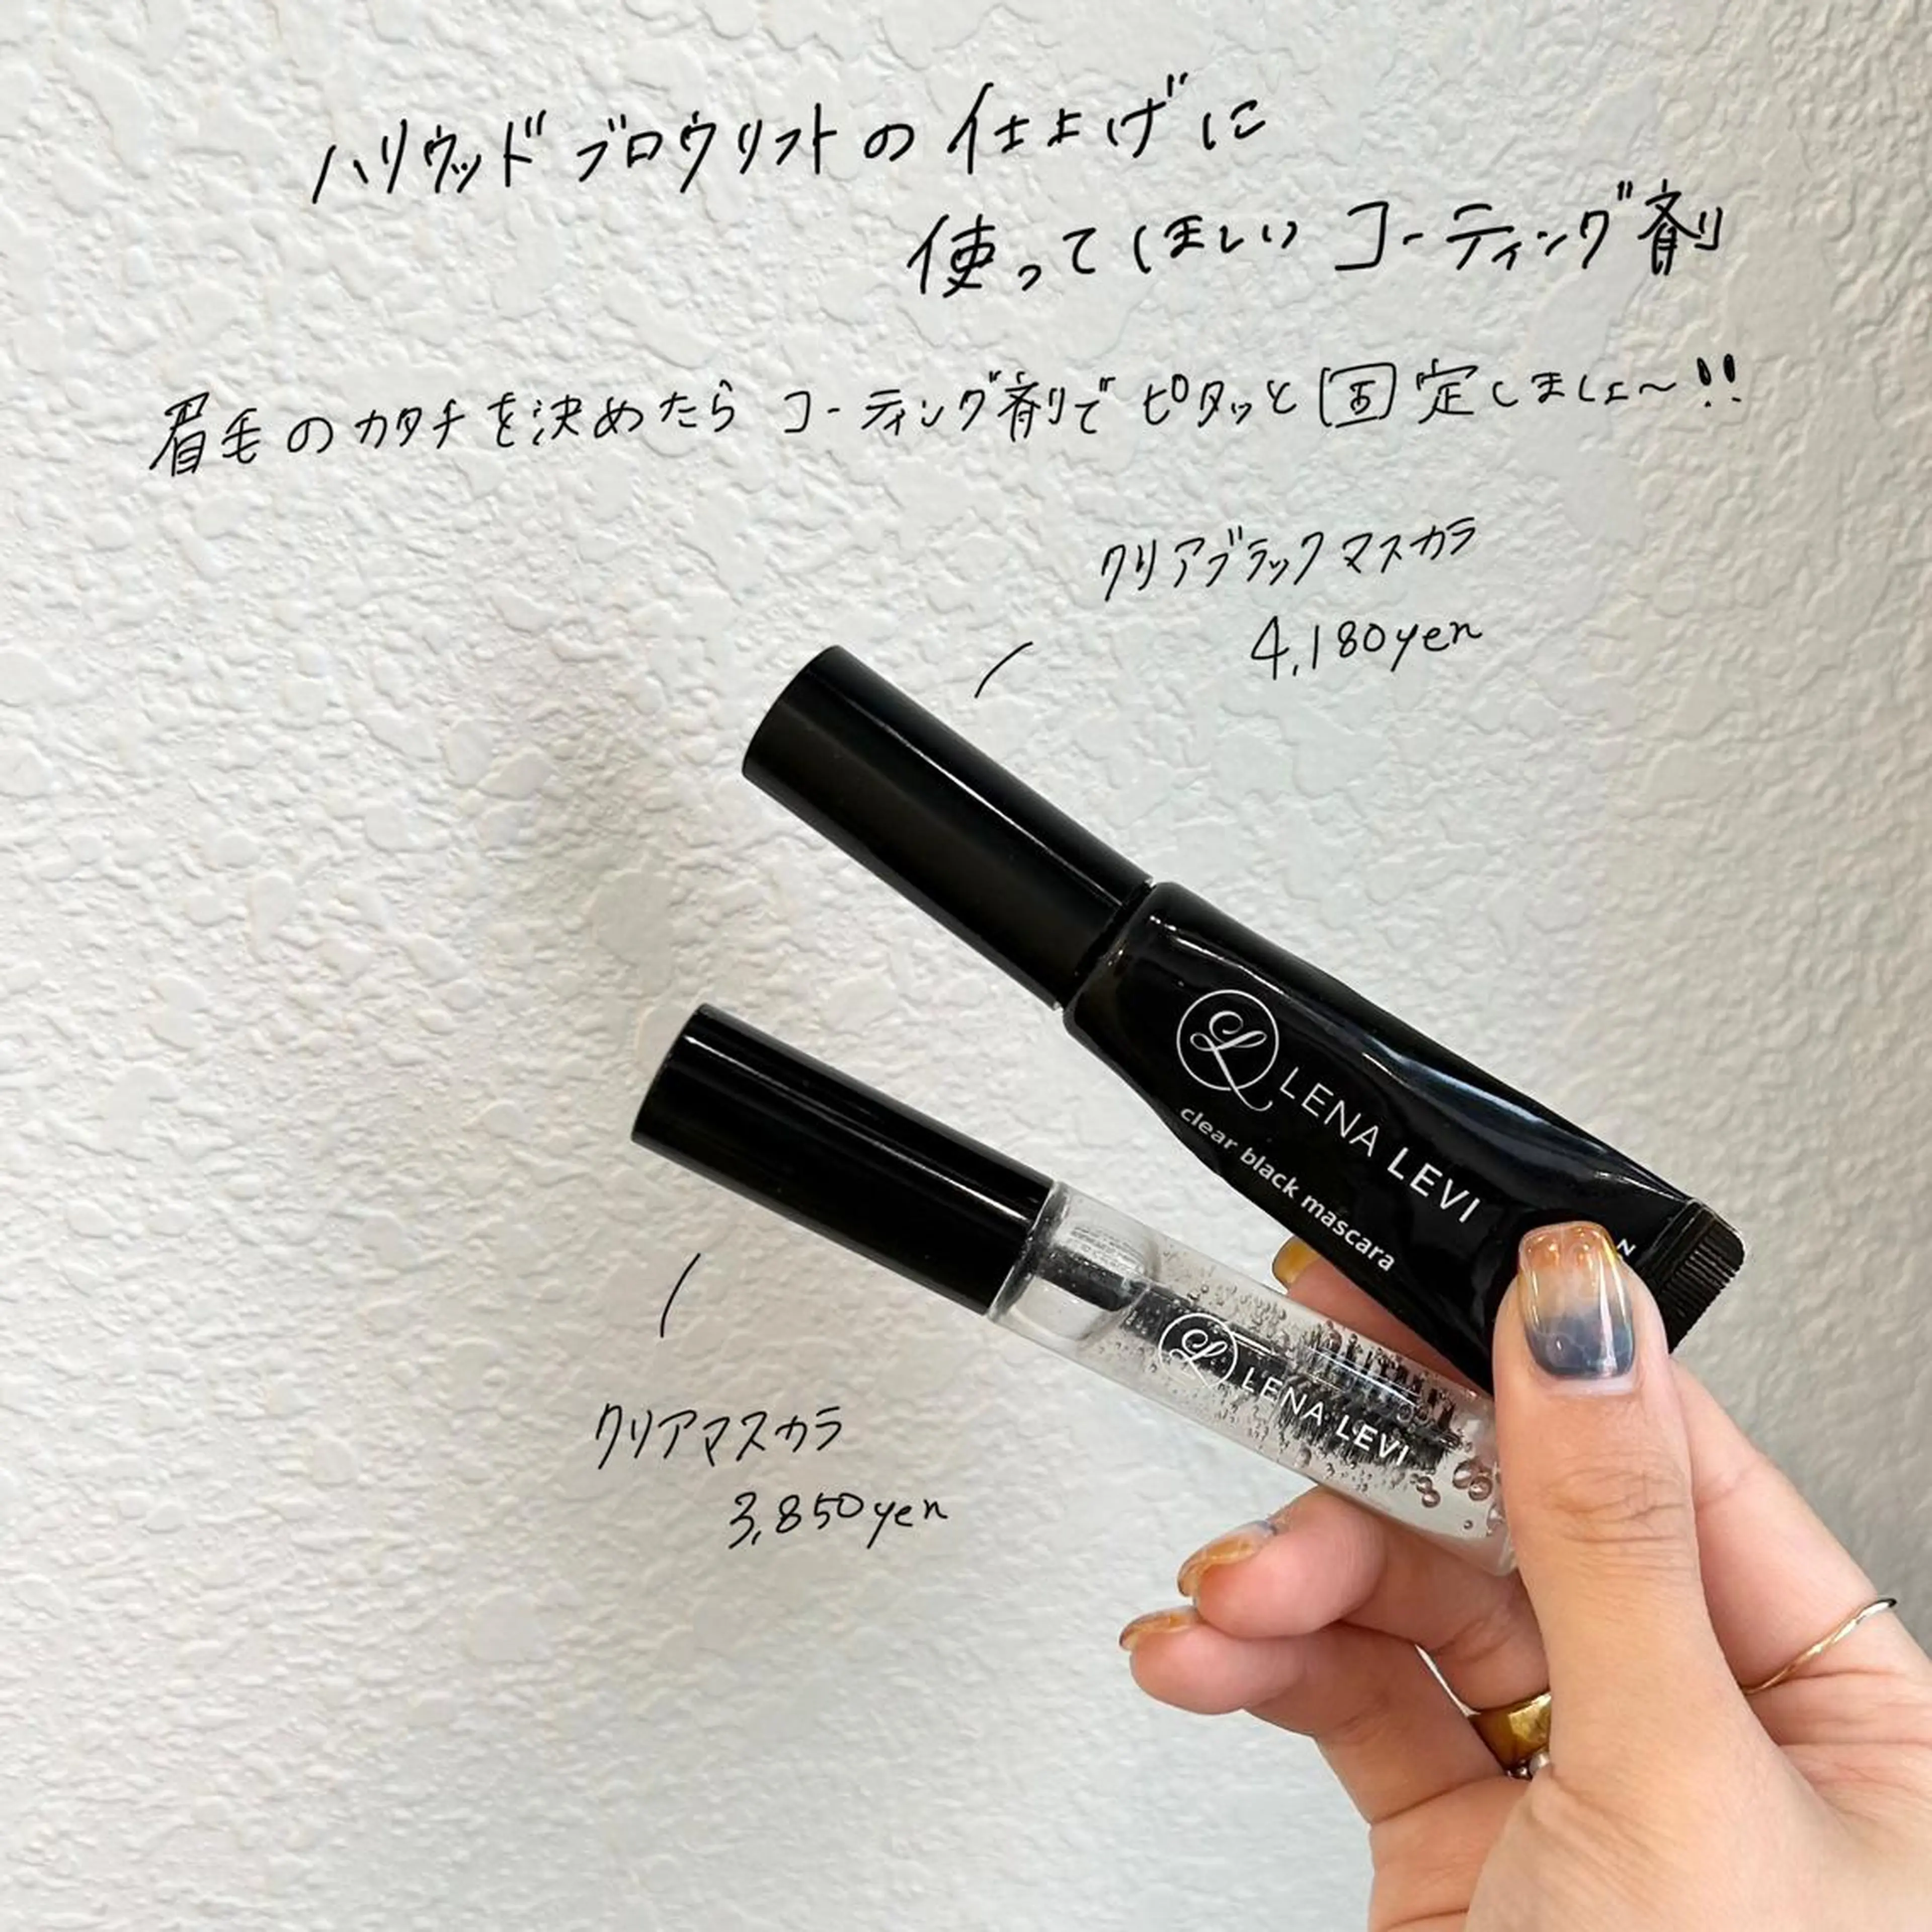 ハリウッドブロウリフトの仕上げに
使ってほしいコーティング剤
眉毛のカタチを決めたらコーティング剤でピタッと固定しましょ〜!!
クリアブラックマスカラ
4,180yen
LENA LEVI
clear black mascara
LENA LEVI
クリアマスカラ
3,850yen